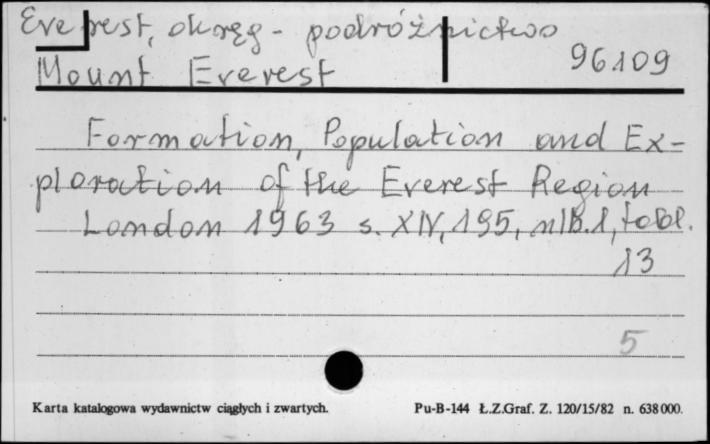 Everest, okręg - podróżnictwo
Mount Everest 96109
Formation, Population and Ex-
ploration of the Everest Region
London 1963 s. XIV, 195, nlb. 1, tabl.
13
5
Karta katalogowa wydawnictw ciągłych i zwartych. Pu-B-144 Ł.Z.Graf. Z. 120/15/82 n. 638000.